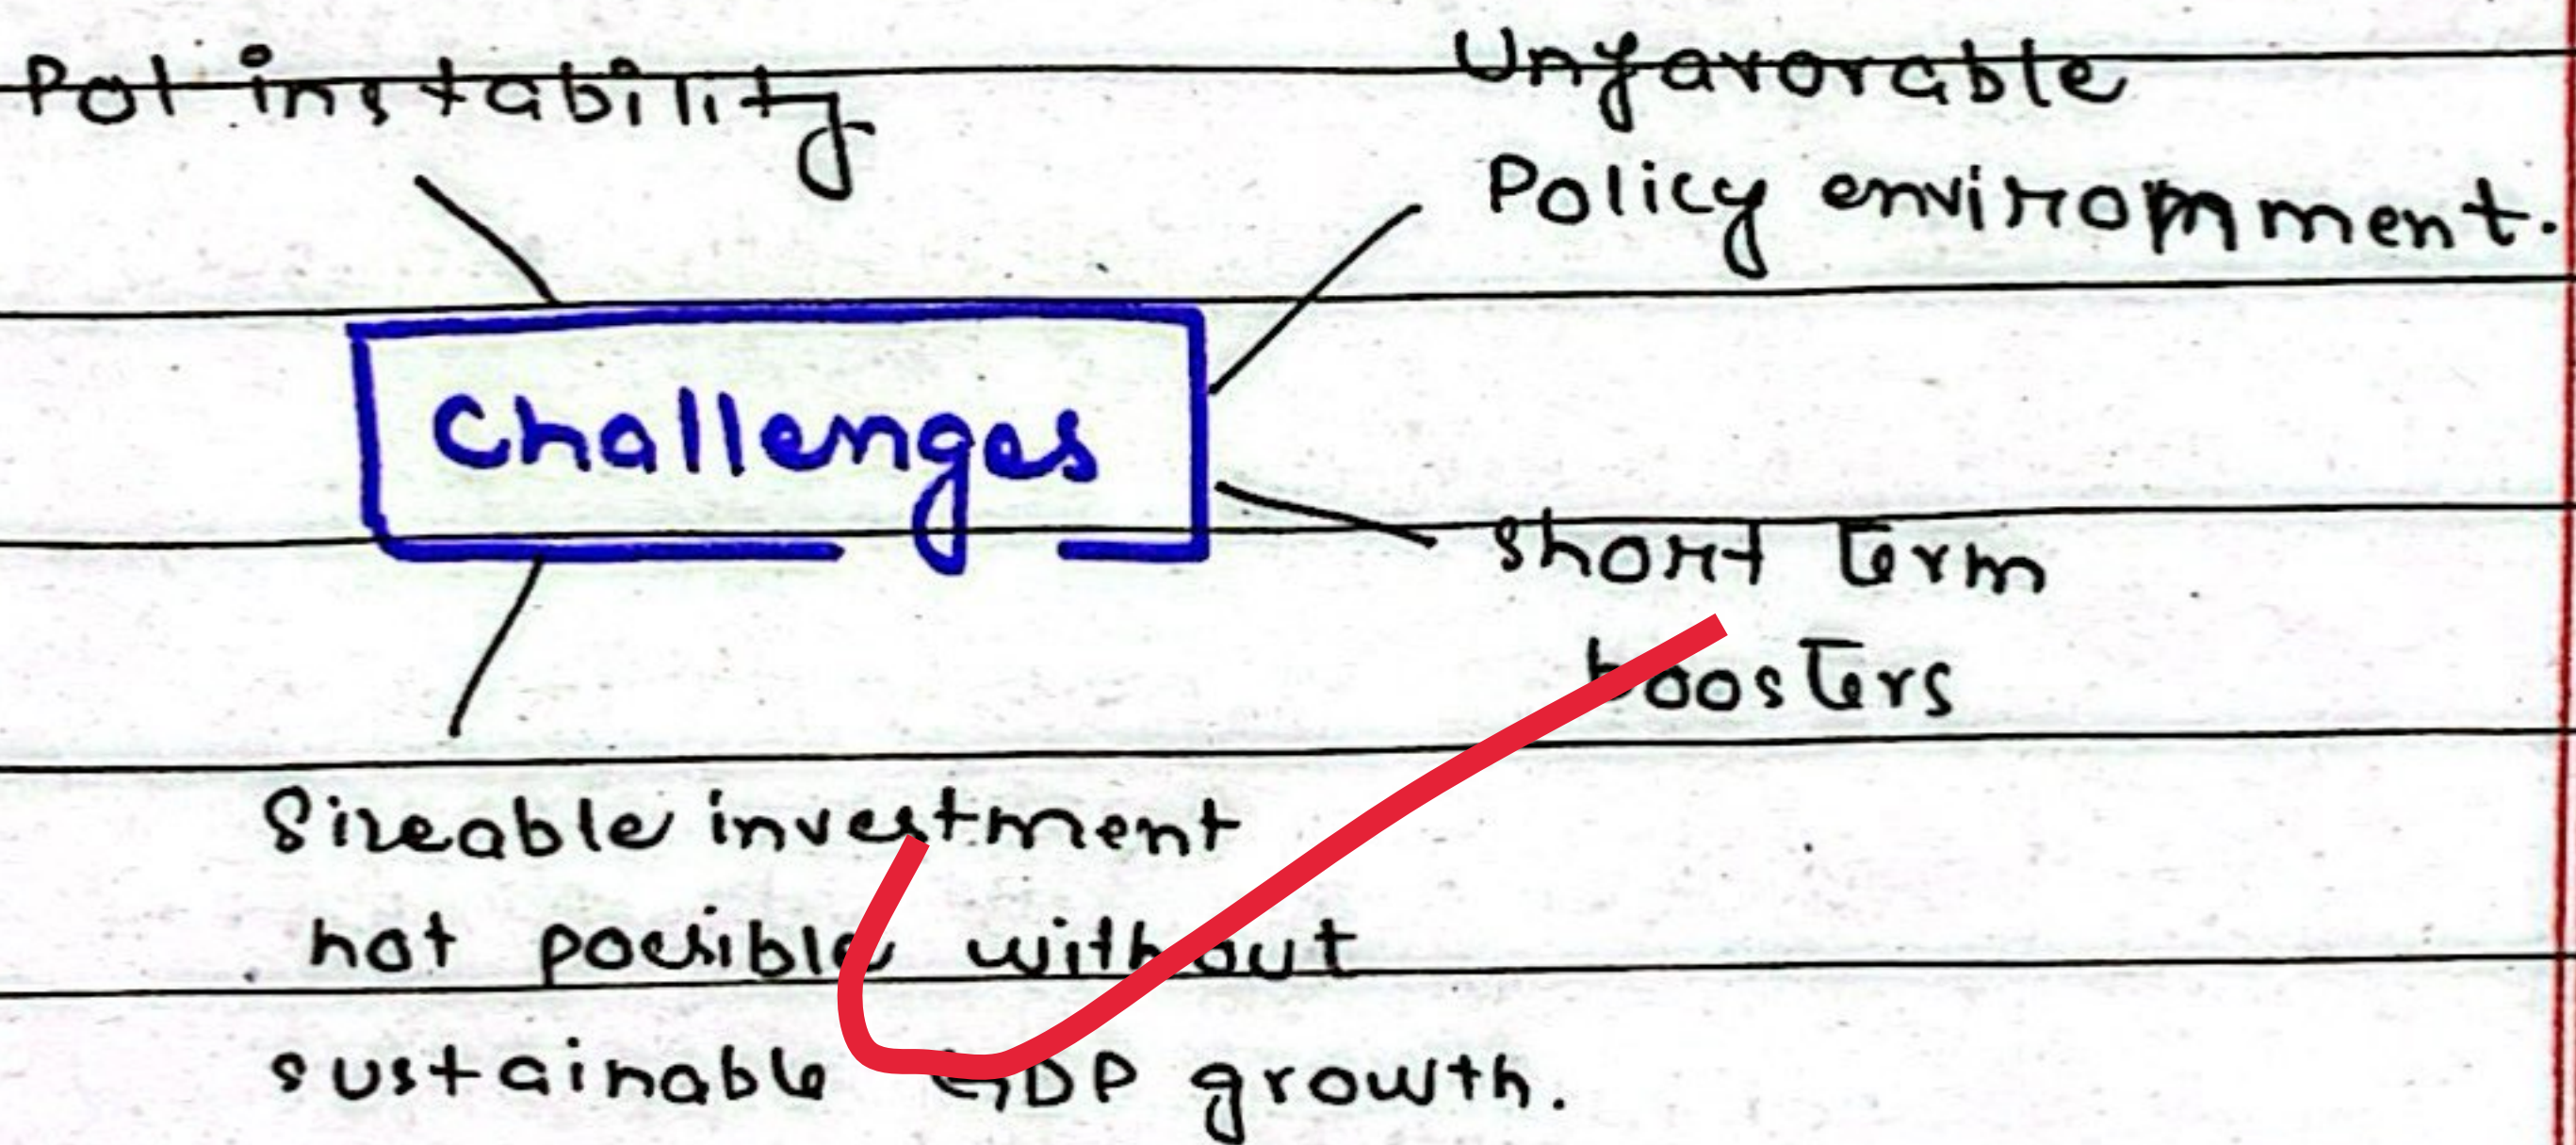 Pol instability
Unfavorable
Policy environment.
Challenges
short term
boosters
Sizeable investment
not possible without
sustainable GDP growth.